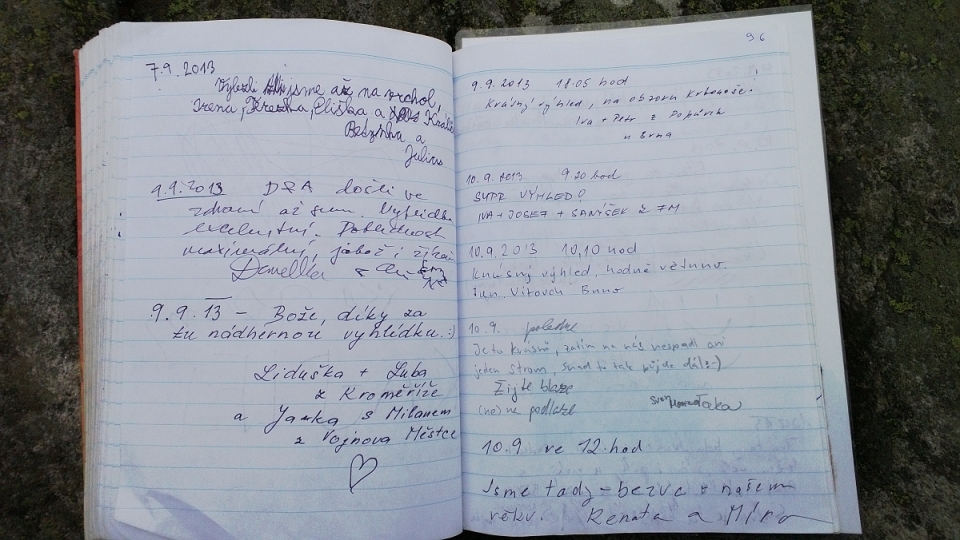 7.9.2013
Vylezli jsme až na vrchol,
Irena, Terezka, Eliška a
Julius
9.9.2013 DRA došli ve
zdraví až sem. Vyhlídka
excelentní. Dohlednost
maximální, jakož i
9.9.13 – Bože, díky za
tu nádhernou vyhlídku. :)
Liduška + Luba
z Kroměříže
a Jarka s Milanem
z Vojnova Městce
96
9.9.2013 18.05 hod
Krásný výhled, na obzoru Krkonoše.
Iva + Petr z Popůvek
u Brna
10.9.2013 9.20 hod
SUPR VÝHLED!
IVA + JOSEF + z
10.9.2013 10,10 hod
krásný výhled, hodně větrno.
Brno
10.9. poledne
Je to krásné, zatím na nás nespadl ani
jeden strom, snad to tak půjde dál :-)
Žijte blaze
(ne) na podlaze
10.9 ve 12.hod
Jsme tady – bezva v našem
věku. Renata a Míra